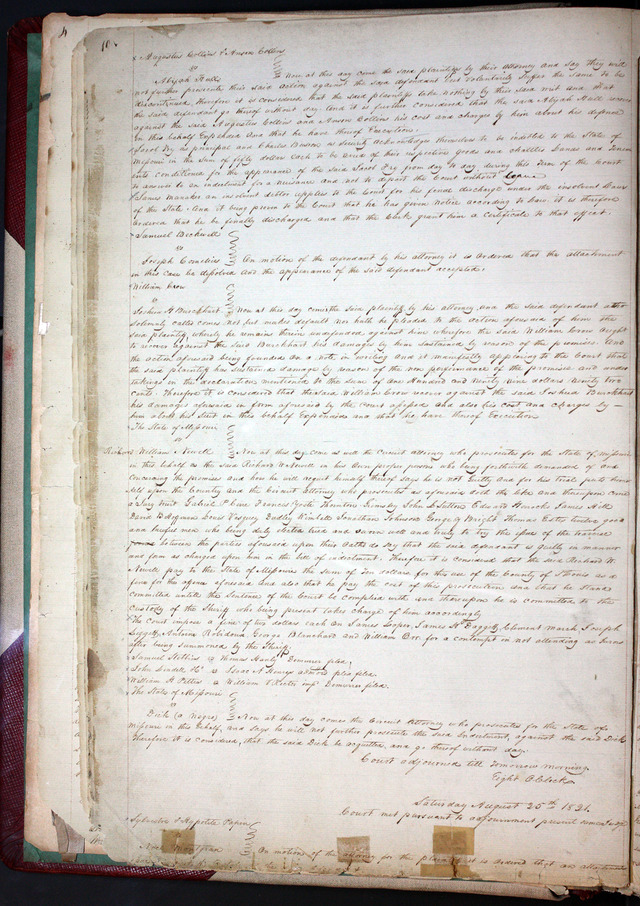 10
Augustus Collins & Anson Collins
vs
Abijah Hull Now at this day come the said plaintiffs by their attorney and say they will
not further prosecute their said action against the said defendant but voluntarily suffer the same to be
discontinued, therefore it is considered that the said plaintiffs take nothing by their said writ and that
the said defendant go thereof without day. And it is further considered that the said Abijah Hull recover
against the said Augustus Collins and Anson Collins his cost and charges by him about his defence
in this behalf Expended and that he have thereof Execution.
Jacob Fry as principal and Charles as security acknowledges themselves to be indebted to the State of
Missouri in the Sum of fifty dollars Each to be levied of their respective goods and chattles Lands and Tenements
Conditioned for the appearance of the said Jacob Fry from day to day during this Term of the Court
to answer to an indictment for a nuisance and not to depart the Court without leave
James an insolvent debtor applies to the Court for his final discharge under the insolvent laws
of the State. And it being proven to the Court that he has given notice according to law. it is therefore
ordered that he be finally discharged and that the Clerk grant him a Certificate to that effect.
Samuel Beckwell
vs
Joseph Cornelius On motion of the defendant by his attorney it is ordered that the attachment
in this case be dissolved and the appearance of the said defendant accepted.
William Crow
vs
Joshua H Burckhart Now at this day comes the said plaintiff by his attorney and the said defendant after
solemnly called comes not but makes default nor hath he pleaded to the action aforesaid of him the
said plaintiff, whereby he remains therein undefended against him wherefore the said William Crow ought
to recover against the said Burckhart his damages by him sustained by reason of the premises. And
the action aforesaid being founded on a note in writing and it manifestly appearing to the Court that
the said plaintiff has sustained damage by reason of the non performance of the promises and under
takings in the declaration mentioned to the sum of One Hundred and Ninety Nine dollars ninety two
cents. Therefore it is considered that the said William Crow recover against the said Joshua Burckhart
his damages aforesaid in form aforesaid by the Court assessed and also his cost and charges by
him about his suit in this behalf Expended and that he have thereof Execution
The State of Missouri
vs
Richard William Newell Now at this day come as well the Circuit Attorney who prosecutes for the State of Missouri
in this behalf as the said Richard W Newell in his own proper person who being forthwith demanded of and
concerning the premises and how he will acquit himself thereof says he is not Guilty and for his trial puts him
self upon the Country and the Circuit Attorney who prosecutes as aforesaid doth the like and thereupon come
a Jury towit Gabriel Francois Thornton Grimsley John D Sutton Edward James Hill
David B Hoffman Louis Vasquez Dudley Ricketts Jonathan Johnson George G Wright Thomas Estes twelve good
and lawful men who being duly elected tried and sworn well and truly to try the issue of the traverse
between the parties aforesaid upon their oaths do say that the said defendant is guilty in manner
and form as charged upon him in the bill of indictment. Therefore it is considered that the said Richard W.
Newell pay to the State of Missouri the sum of Ten dollars for the use of the County of St Louis as a
fine for the offence aforesaid and also that he pay the cost of this prosecution and that he stand
committed untill the Sentence of the Court be complied with and thereupon he is committed to the
custody of the Sheriff who being present takes charge of him accordingly
The Court impose a fine of two dollars each on James Loper James H Daggett Clement March Joseph
Leggett Antoine Robidoux George Blanchard and William Orr for a contempt in not attending as Jurors
after being summoned by the Sheriff
Samuel vs Thomas Hanly Demurrer filed
John Lindell Jr vs Isaac A Henry's admors plea filed.
William H Pettus vs William V Rector imp Demurrer filed.
The State of Missouri
vs
Dick (a Negro) Now at this day comes the Circuit Attorney who prosecutes for the State of
Missouri in this behalf, and says he will not further prosecute the said Indictment, against the said Dick
Therefore it is considered, that the said Dick be acquitted, and go thereof without day.
Court adjourned till Tomorrow morning
Eight OClock
Saturday August 25th 1821.
Court met pursuant to adjournment present same Judge
Sylvestre & Hypolite Papin
vs
On motion of the attorney for the plaintiff it is ordered that an attachment